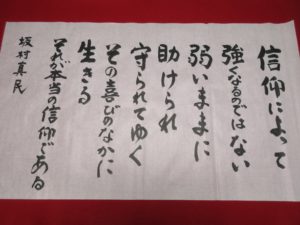 信仰によって
強くなるのではない
弱いままに
助けられ
守られてゆく
その喜びのなかに
生きる
それが本当の信仰である
坂村真民